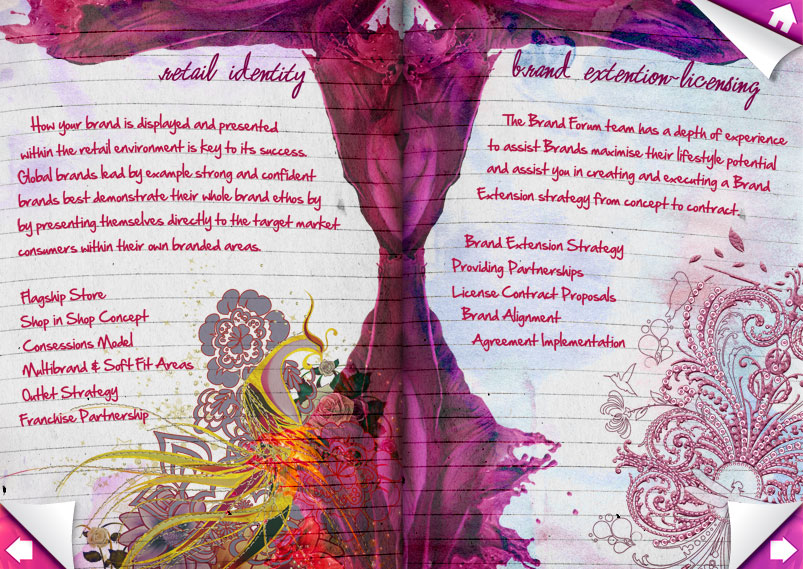 retail identity
How your brand is displayed and presented
within the retail environment is key to its success.
Global brands lead by example strong and confident
brands best demonstrate their whole brand ethos by
by presenting themselves directly to the target market
consumers within their own branded areas.
Flagship Store
Shop in Shop Concept
Consessions Model
Multibrand & Soft Fit Areas
Outlet Strategy
Franchise Partnership
brand extention~licensing
The Brand Forum team has a depth of experience
to assist Brands maximise their lifestyle potential
and assist you in creating and executing a Brand
Extension strategy from concept to contract.
Brand Extension Strategy
Providing Partnerships
License Contract Proposals
Brand Alignment
Agreement Implementation